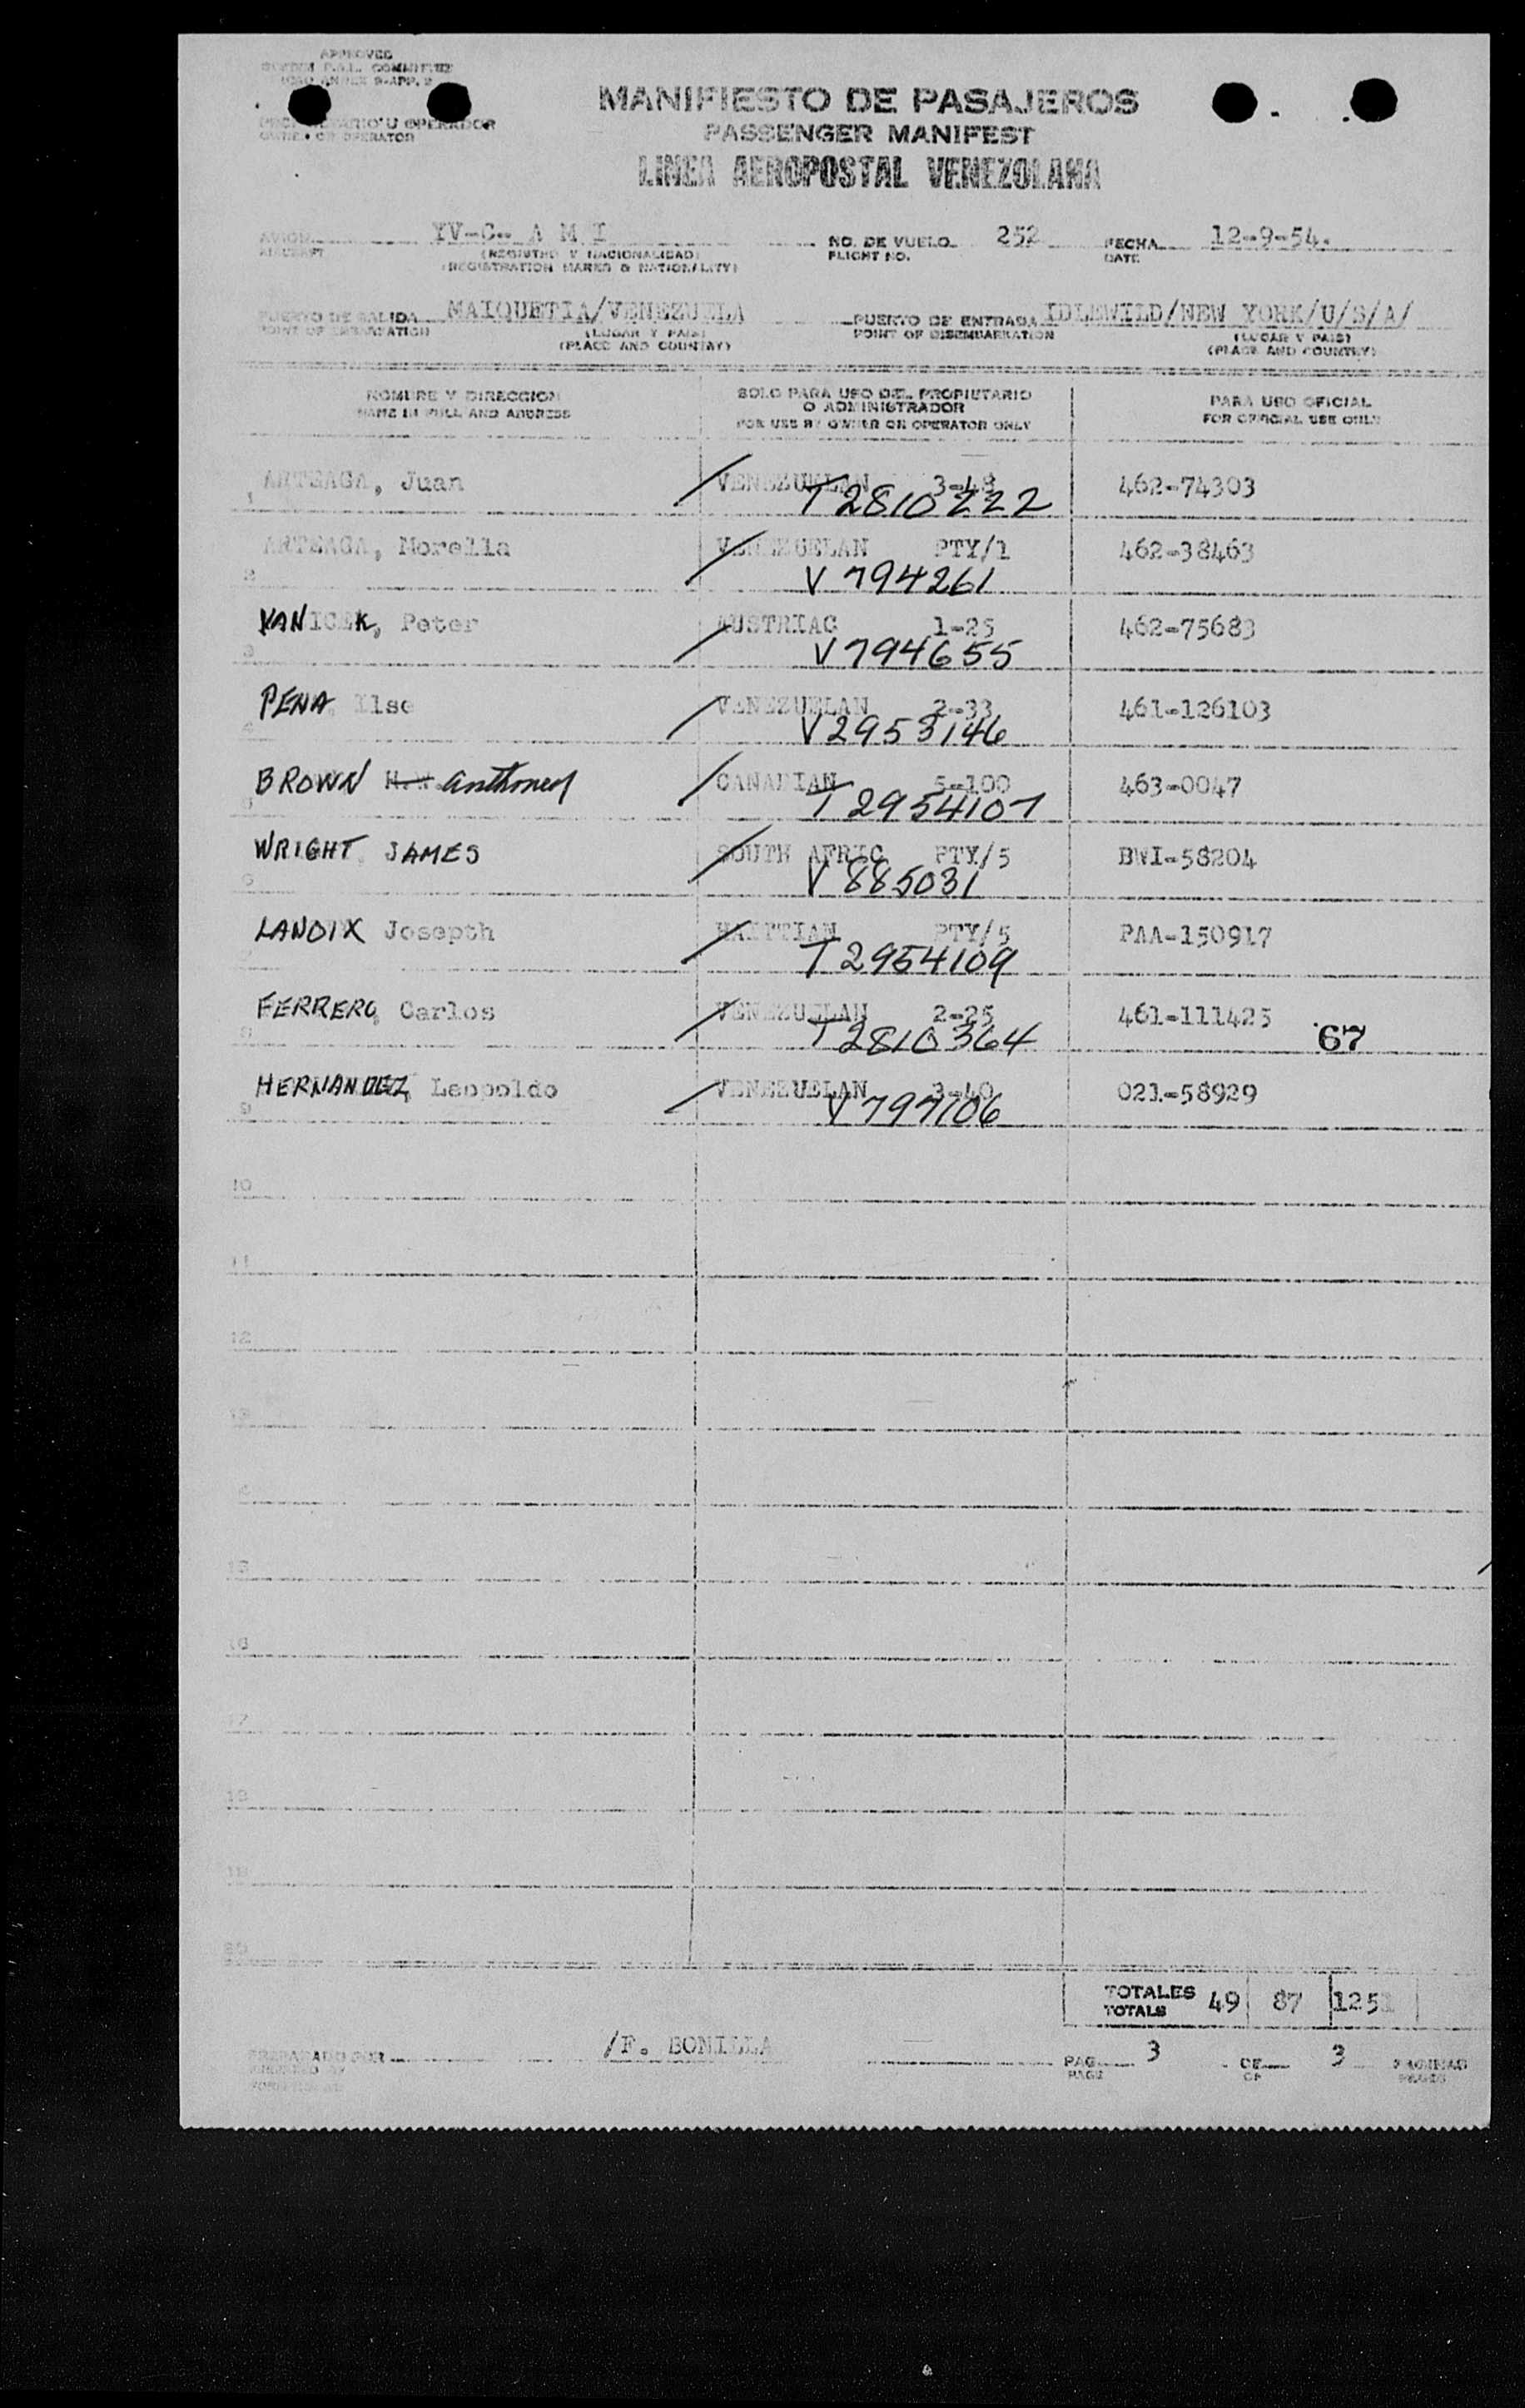 APPROVED
COMMITTEE
ANNEX 9-APP. 2
U OPERADOR
OPERATOR
MANIFIESTO DE PASAJEROS
PASSENGER MANIFEST
LINEA AEROPOSTAL VENEZOLANA
AVION YV-C- A M I NO. DE VUELO 252 FECHA 12-9-54.
AIRCRAFT (REGISTRO Y NACIONALIDAD) FLIGHT NO. DATE
(REGISTRATION MARKS & NATIONALITY)
PUERTO DE SALIDA MAIQUETIA/VENEZUELA PUERTO DE ENTRADA IDLEWILD/NEW YORK/U/S/A/
POINT OF EMBARKATION (LUGAR Y PAIS) POINT OF DISEMBARKATION (LUGAR Y PAIS)
(PLACE AND COUNTRY) (PLACE AND COUNTRY)
NOMBRE Y DIRECCION SOLO PARA USO DEL PROPIETARIO PARA USO OFICIAL
NAME IN FULL AND ADDRESS O ADMINISTRADOR FOR OFFICIAL USE ONLY
FOR USE BY OWNER OR OPERATOR ONLY
ARTEAGA, Juan VENEZUELAN 3-48 462-74303
1 T2810222
ARTEAGA, Morella VENEZUELAN PTY/1 462-38463
2 V794261
VANICEK, Peter AUSTRIAC 1-25 462-75683
3 V794655
PENA Ilse VENEZUELAN 2-33 461-126103
4 V2953146
BROWN Anthoney CANADIAN 5-100 463-0047
5 T2954107
WRIGHT JAMES SOUTH AFRIC PTY/5 BWI-58204
6 V885031
LANDIX Josepth HAITTIAN PTY/5 PAA-150917
T2954109
FERRERO, Carlos VENEZUELAN 2-25 461-111425
8 T2810364 67
HERNANDEZ, Leopoldo VENEZUELAN 3-40 021-58929
9 V797106
10
11
12
13
15
16
17
18
19
20
TOTALES 49 87 1251
TOTALS
PREPARADO POR /F. BONILLA PAG. 3 DE 3 PAGINAS
PREPARED BY PAGE OF PAGES